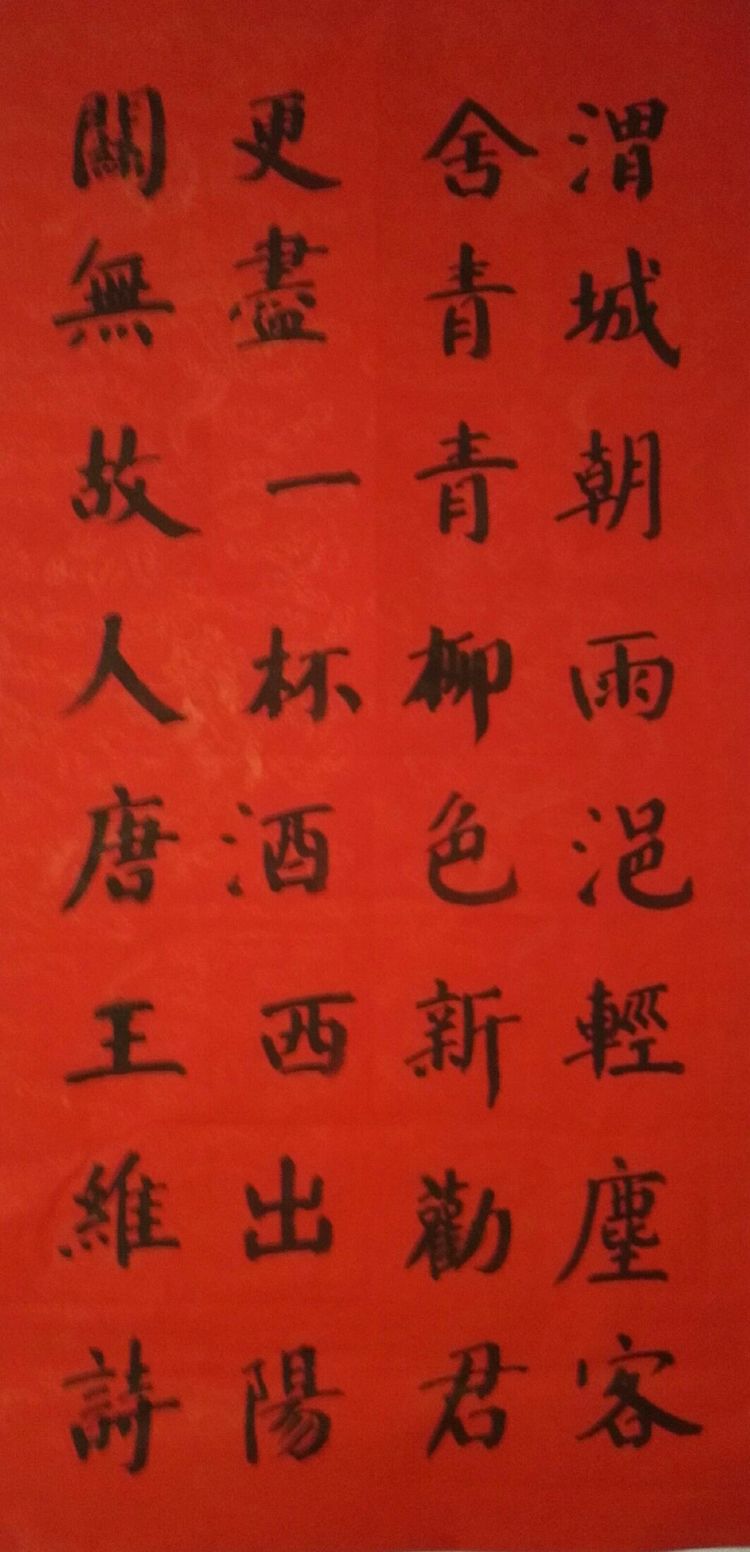 渭城朝雨浥輕塵客
舍青青柳色新勸君
更盡一杯酒西出陽
關無故人唐王維詩